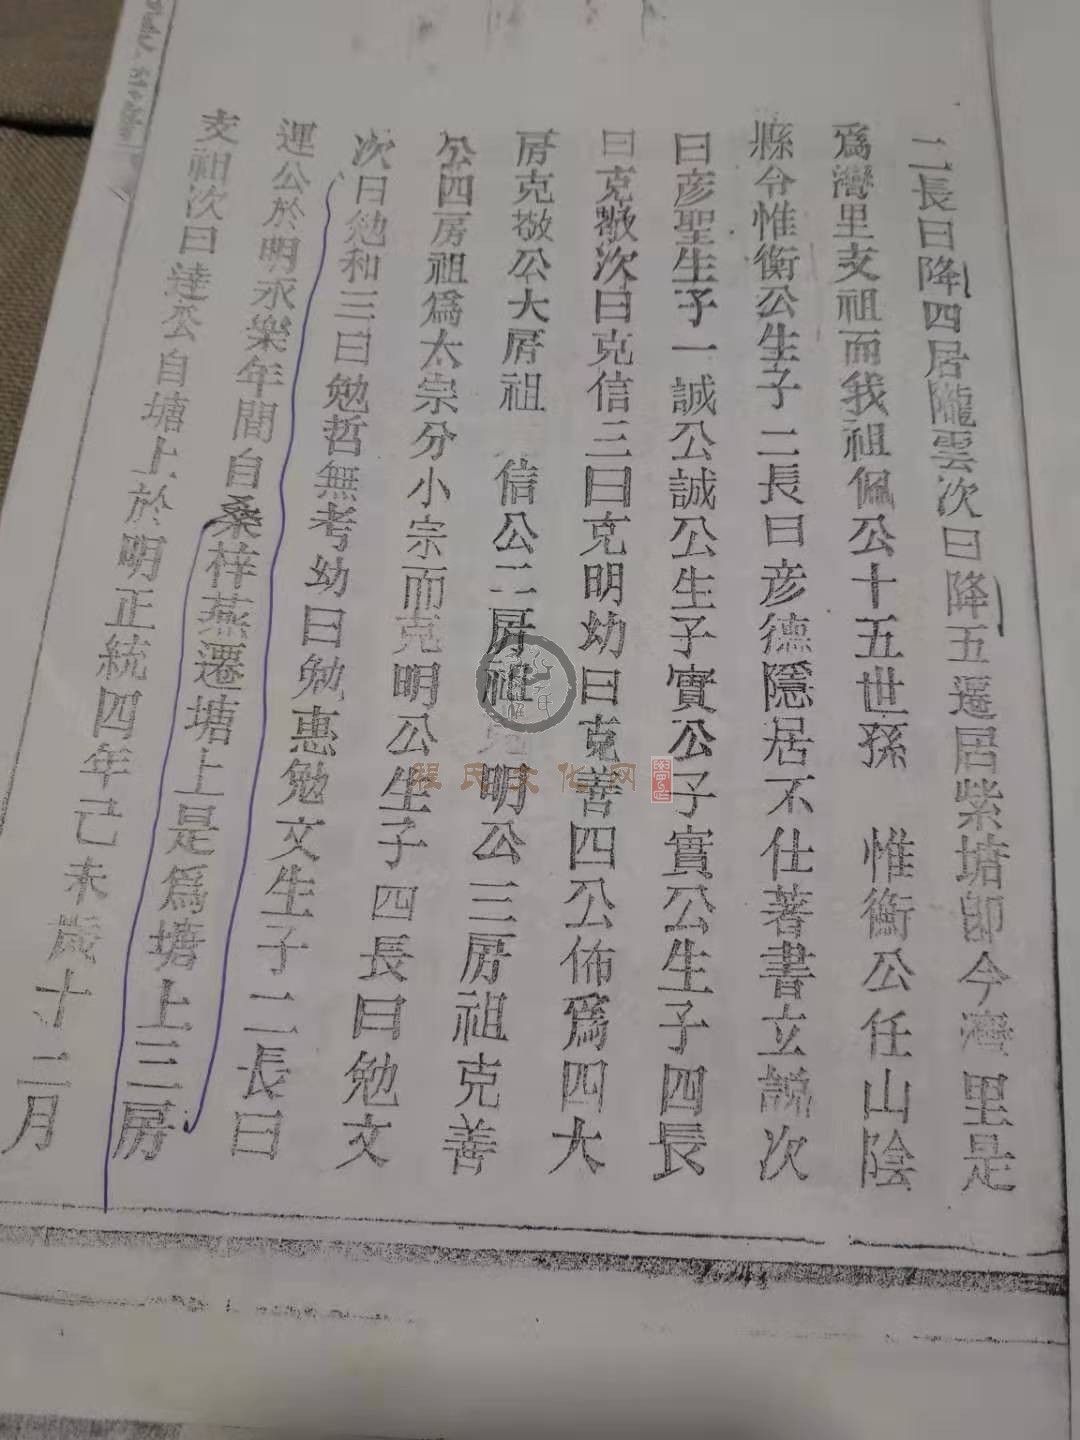 二長曰降四居隴雲次曰降五遷居紫塘即今灣里是
爲灣里支祖而我祖佩公十五世孫 惟衡公任山陰
縣令惟衡公生子二長曰彥德隱居不仕著書立説次
曰彥聖生子一誠公誠公生子實公子實公生子四長
曰克敬次曰克信三曰克明幼曰克善四公佈爲四大
房克敬公大房祖 信公二房祖克明公三房祖克善
公四房祖爲太宗分小宗而克明公生子四長曰勉文
次曰勉和三曰勉哲無考幼曰勉惠勉文生子二長曰
運公於明永樂年間自桑梓燕遷塘上是爲塘上三房
支祖次曰達公自塘上於明正統四年己未歲十二月
程氏文化网